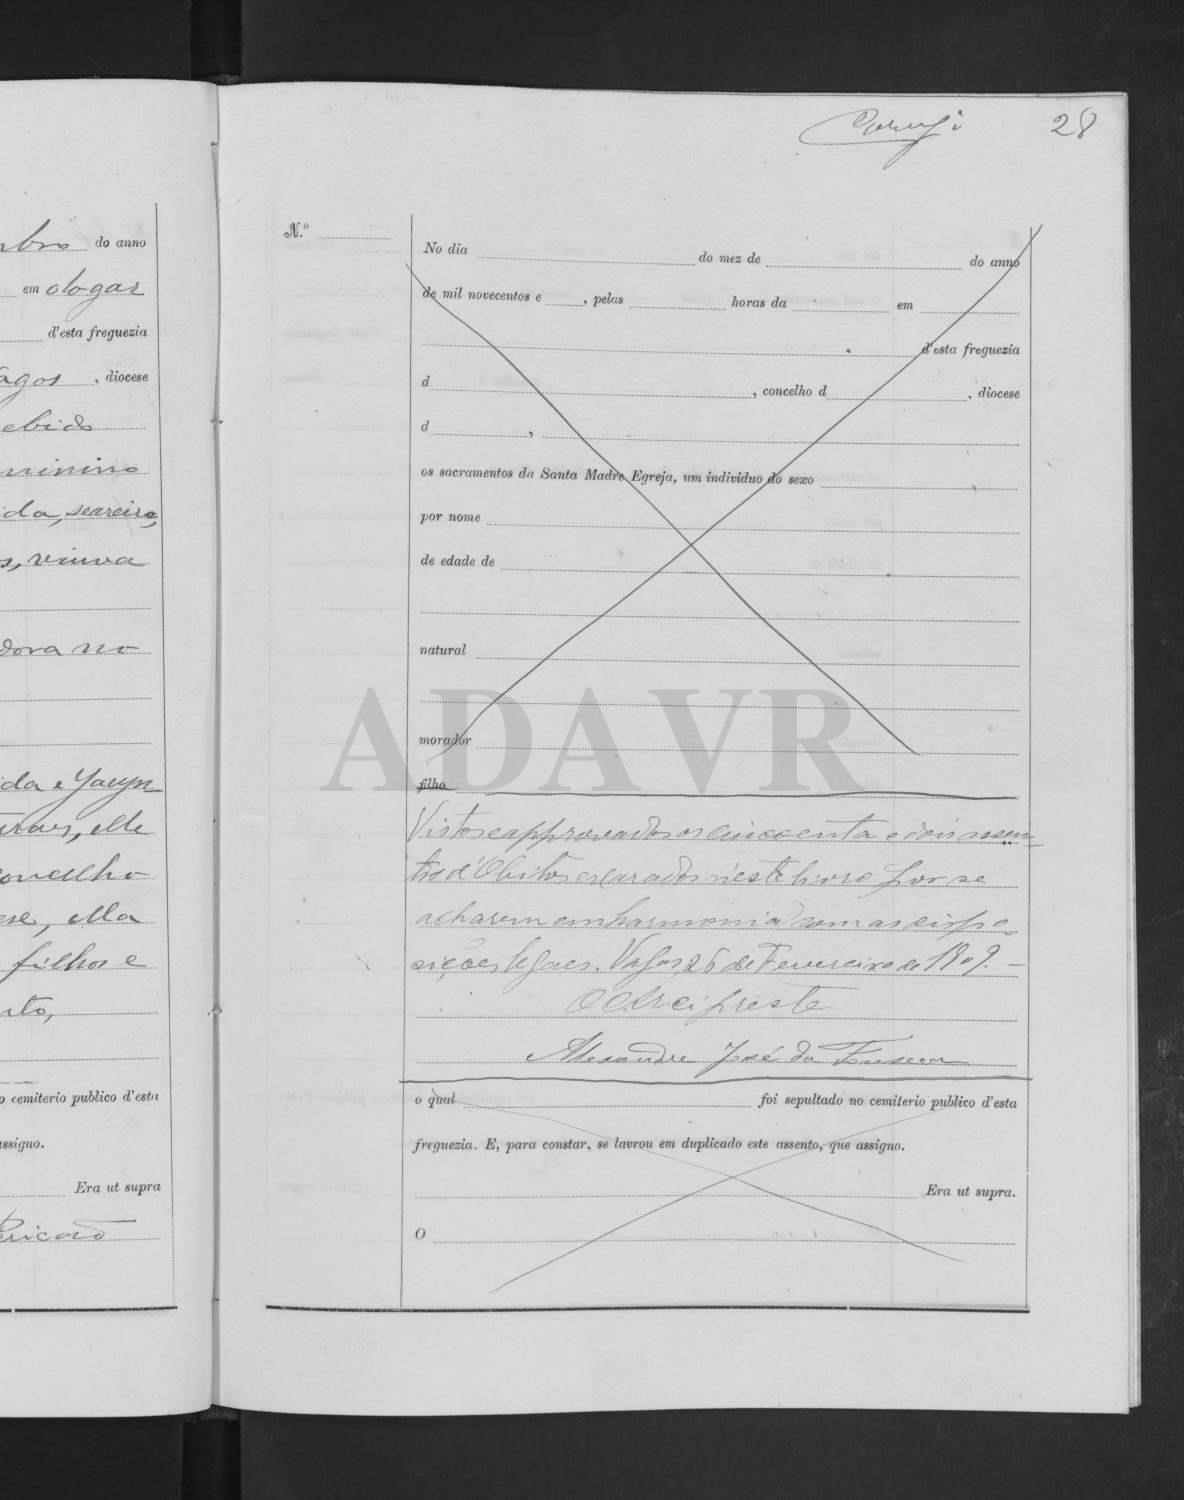 28
do anno
em o logar
d'esta freguezia
agos, diocese
ebido
minino
ida, seareira,
s, viuva
dora no
ida e
ele
concelho
ese, ella
filhos e
nto,
o cemiterio publico d'esta
assigno.
Era ut supra
N.º
No dia do mez de do anno
de mil novecentos e , pelas horas da em
d'esta freguezia
d , concelho d , diocese
d ,
os sacramentos da Santa Madre Egreja, um individuo do sexo
por nome
de edade de
natural
morador
filho
Vistos e approvados os cincoenta e dois assen-
tos d'Obitos exarados n'este livro por se
acharem em harmonia com as dispo-
sições legaes. Vagos, 26 de Fevereiro de 1909.
O Arcipreste
Alexandre José da Fonseca
o qual foi sepultado no cemiterio publico d'esta
freguezia. E, para constar, se lavrou em duplicado este assento, que assigno.
Era ut supra.
O
ADAVR